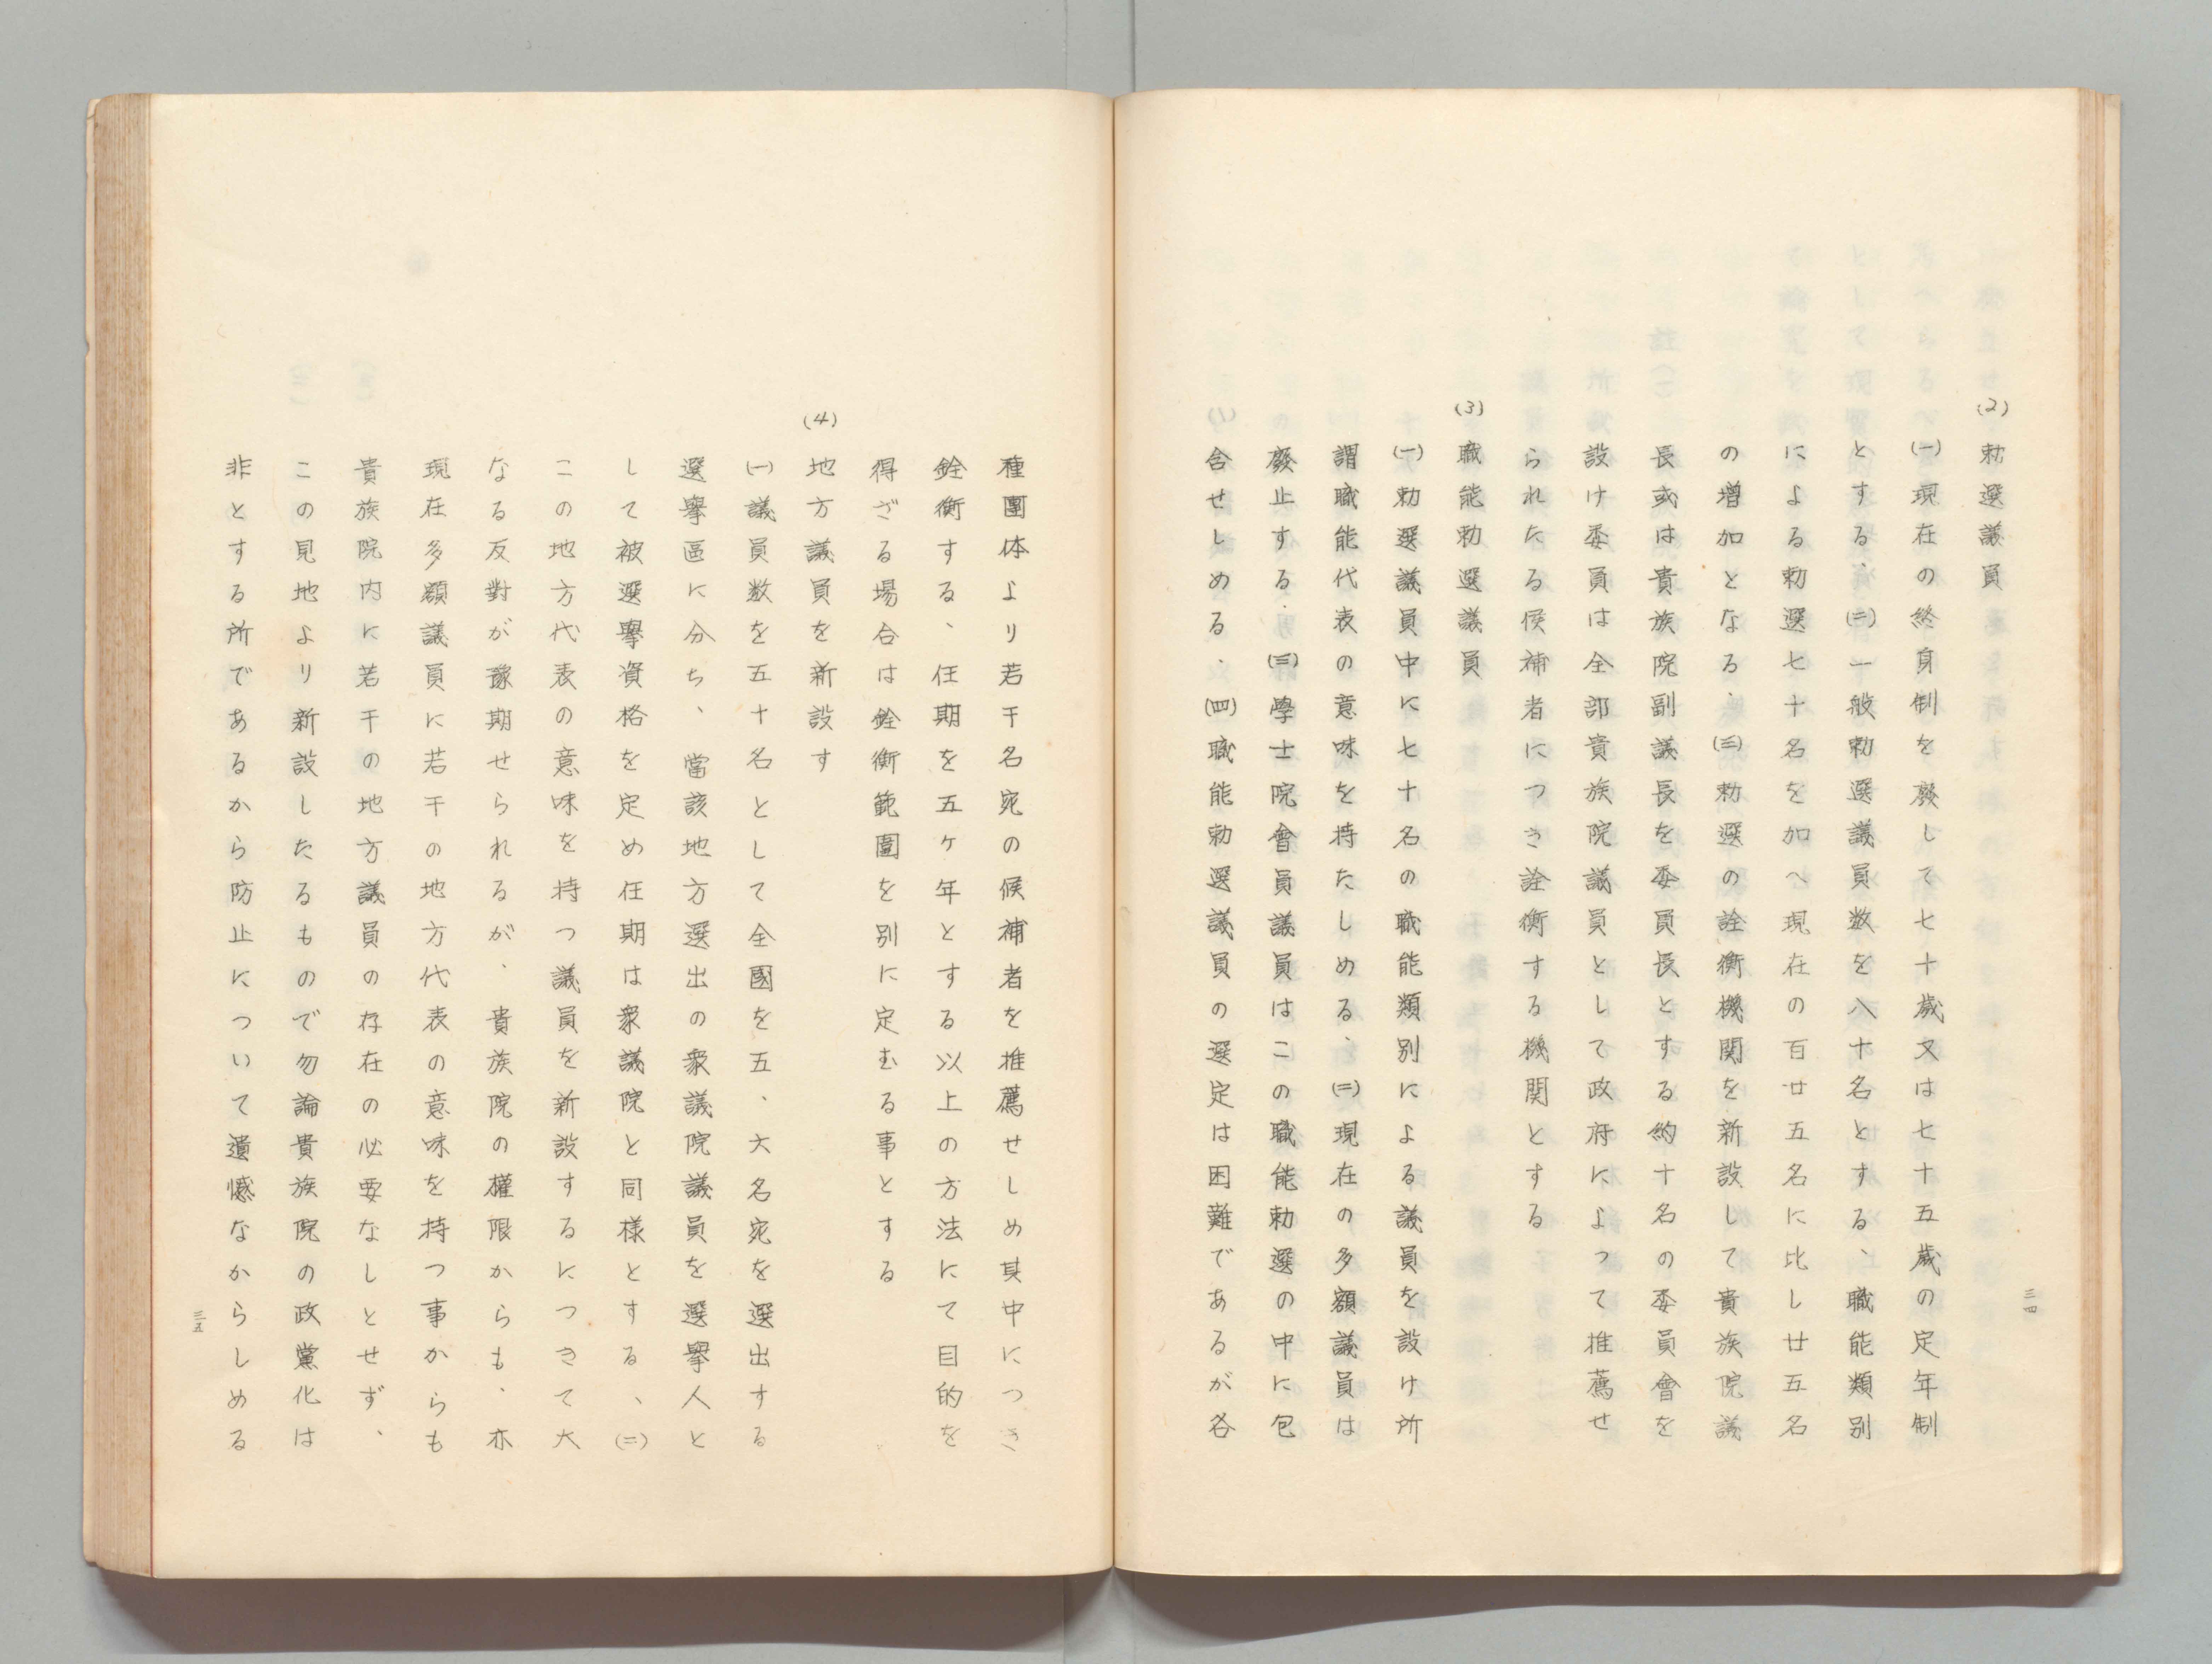 (2)
勅選議員
(一)現在の終身制を廢して七十歳又は七十五歳の定年制
とする、(二)一般勅選議員数を八十名とする、職能類別
による勅選七十名を加へ現在の百廿五名に比し廿五名
の増加となる、(三)勅選の詮衡機関を新設して貴族院議
長或は貴族院副議長を委員長とする約十名の委員會を
設け委員は全部貴族院議員として政府によつて推薦せ
られたる侯補者につき詮衡する機関とする
(3)
職能勅選議員
(一)勅選議員中に七十名の職能類別による議員を設け所
謂職能代表の意味を持たしめる、(二)現在の多額議員は
廢止する.(三)學士院會員議員はこの職能勅選の中に包
含せしめる.(四)職能勅選議員の選定は困難であるが各
三四
種團体より若干名宛の候補者を推薦せしめ其中につき
銓衡する、任期を五ヶ年とする以上の方法にて目的を
得ざる場合は銓衡範圍を別に定むる事とする
(4)
地方議員を新設す
(一)議員数を五十名として全國を五、六名宛を選出する
選擧區に分ち、當該地方選出の衆議院議員を選擧人と
して被選擧資格を定め任期は衆議院と同様とする、、(二)
この地方代表の意味を持つ議員を新設するにつきて大
なる反對が豫期せられるが、貴族院の權限からも、亦
現在多額議員に若干の地方代表の意味を持つ事からも
貴族院内に若干の地方議員の存在の必要なしとせず、
この見地より新設したるもので勿論貴族院の政黨化は
非とする所であるから防止について遺憾なからしめる
三五